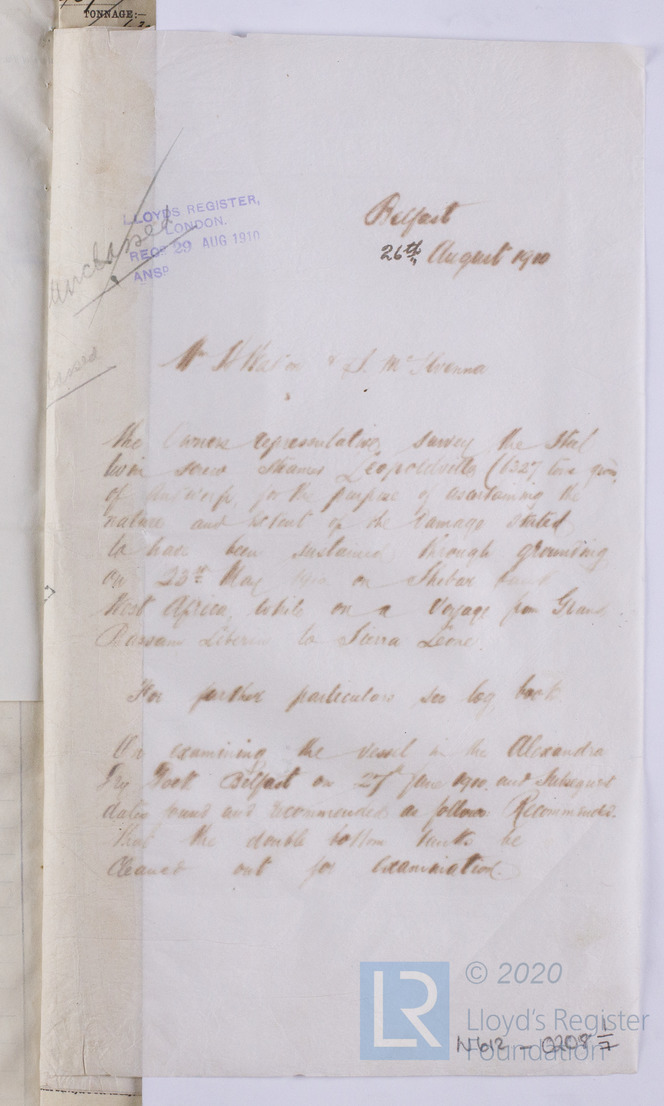 TONNAGE:-
LLOYDS REGISTER,
LONDON.
RECD 29 AUG 1910
ANSD
Unclassed
Belfast
26th August 1910
& J. McIlvenna
the Owners representative, survey the Steel
twin screw Steamer Leopoldville (6227 tons gross
of Antwerp, for the purpose of ascertaining the
nature and extent of the damage stated
to have been sustained through grounding
on 23rd May 1910 on Shebar
West Africa, while on a Voyage from Grand
Bassam Liberia to Sierra Leone
For further particulars see log book
On examining the vessel in the Alexandra
Dry Dock Belfast on 27th June 1910 and subsequent
dates found and recommended as follows Recommended.
That the double bottom tanks be
cleaned out for examination.
© 2020
LR
Lloyd's Register
Foundation
N612 - 0208 1/7